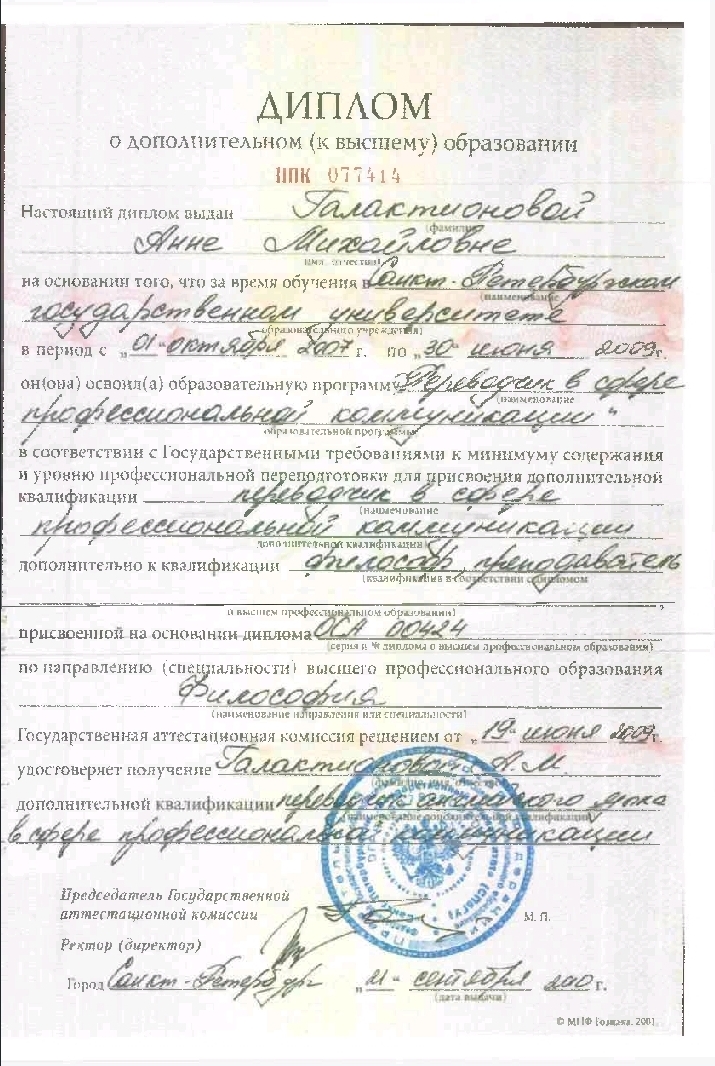 ДИПЛОМ
о дополнительном (к высшему) образовании
ППК 077414
Настоящий диплом выдан Галактионовой
(фамилия
Анне Михайловне
имя, отчество)
на основании того, что за время обучения в Санкт-Петербургском
(наименование
государственном университете
образовательного учреждения)
в период с „01" октября 2007 г. по „30" июня 2009г.
он(она) освоил(а) образовательную программу „Переводчик в сфере
(наименование
профессиональной коммуникации"
образовательной программы)
в соответствии с Государственными требованиями к минимуму содержания
и уровню профессиональной переподготовки для присвоения дополнительной
квалификации переводчик в сфере
(наименование
профессиональной коммуникации
дополнительной квалификации)
дополнительно к квалификации философ, преподаватель
(квалификация в соответствии с дипломом
о высшем профессиональном образовании)
присвоенной на основании диплома ОСА 00424
(серия и № диплома о высшем профессиональном образовании)
по направлению (специальности) высшего профессионального образования
Философия
(наименование направления или специальности)
Государственная аттестационная комиссия решением от „19" июня 2009г.
удостоверяет получение Галактионовой А.М.
дополнительной квалификации переводчик английского языка
(наименование дополнительной квалификации)
в сфере профессиональной коммуникации
Председатель Государственной
аттестационной комиссии
М. П.
Ректор (директор)
Город Санкт-Петербург „11" сентября 200 г.
(дата выдачи)
© МПФ Гознака. 2001.